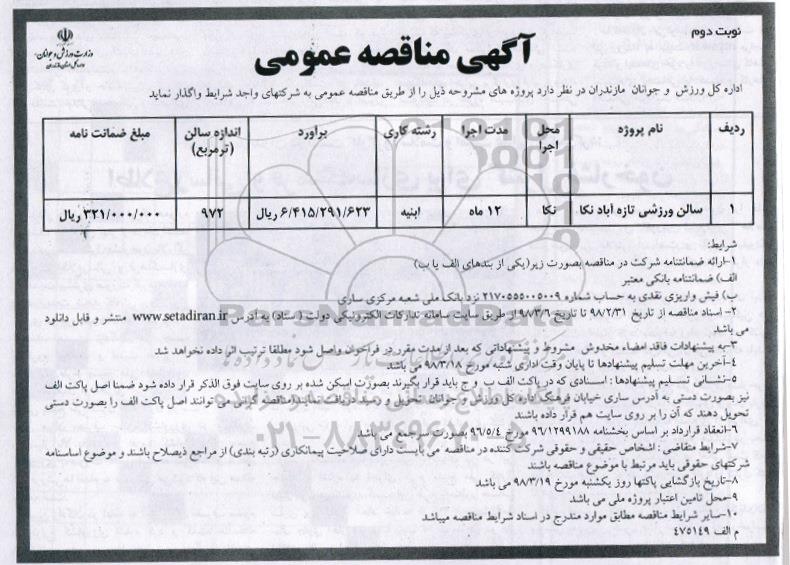 نوبت دوم
وزارت ورزش و جوانان
آگهی مناقصه عمومی
اداره کل ورزش و جوانان مازندران در نظر دارد پروژه های مشروحه ذیل را از طریق مناقصه عمومی به شرکتهای واجد شرایط واگذار نماید
ردیف نام پروژه محل اجرا مدت اجرا رشته کاری برآورد اندازه سالن (ترمربع) مبلغ ضمانت نامه
۱ سالن ورزشی تازه آباد نکا نکا ۱۲ ماه ابنیه ۶/۴۱۵/۲۹۱/۶۲۳ ریال ۹۷۲ ۳۲۱/۰۰۰/۰۰۰ ریال
شرایط:
۱-ارائه ضمانتنامه شرکت در مناقصه بصورت زیر(یکی از بندهای الف یا ب)
الف) ضمانتنامه بانکی معتبر
ب) فیش واریزی نقدی به حساب شماره ۲۱۷۰۵۵۵۰۰۵۰۰۹ نزد بانک ملی شعبه مرکزی ساری
۲- اسناد مناقصه از تاریخ ۹۸/۲/۳۱ تا تاریخ ۹۸/۳/۶ از طریق سایت سامانه تدارکات الکترونیکی دولت (ستاد) به آدرس www.setadiran.ir منتشر و قابل دانلود
می باشد
۳-به پیشنهادات فاقد امضاء مخدوش مشروط و پیشنهاداتی که بعد از مدت مقرر در فراخوان واصل شود مطلقا ترتیب اثر داده نخواهد شد
۴-آخرین مهلت تسلیم پیشنهادها تا پایان وقت اداری شنبه مورخ ۹۸/۳/۱۸ می باشد
۵-نشانی تسلیم پیشنهادها: اسنادی که در پاکت الف ب و ج باید قرار بگیرند بصورت اسکن شده بر روی سایت فوق الذکر قرار داده شود ضمنا اصل پاکت الف
نیز بصورت دستی به آدرس ساری خیابان فرهنگ اداره کل ورزش و جوانان تحویل و رسید دریافت نمایند(مناقصه گرانی می توانند اصل پاکت الف را بصورت دستی
تحویل دهند که آن را بر روی سایت هم قرار داده باشند
۶-انعقاد قرارداد بر اساس بخشنامه ۹۶/۱۲۹۹۱۸۸ مورخ ۹۶/۵/۴ بصورت سرجمع می باشد
۷-شرایط متقاضی: اشخاص حقیقی و حقوقی شرکت کننده در مناقصه می بایست دارای صلاحیت پیمانکاری (رتبه بندی) از مراجع ذیصلاح باشند و موضوع اساسنامه
شرکتهای حقوقی باید مرتبط با موضوع مناقصه باشند
۸-تاریخ بازگشایی پاکتها روز یکشنبه مورخ ۹۸/۳/۱۹ می باشد
۹-محل تامین اعتبار پروژه ملی می باشد
۱۰-سایر شرایط مناقصه مطابق موارد مندرج در اسناد شرایط مناقصه میباشد
م الف ۴۷۵۱۴۹
ParsNamadData
۰۲۱-۸۸۳۴۹۶۷۰-۵